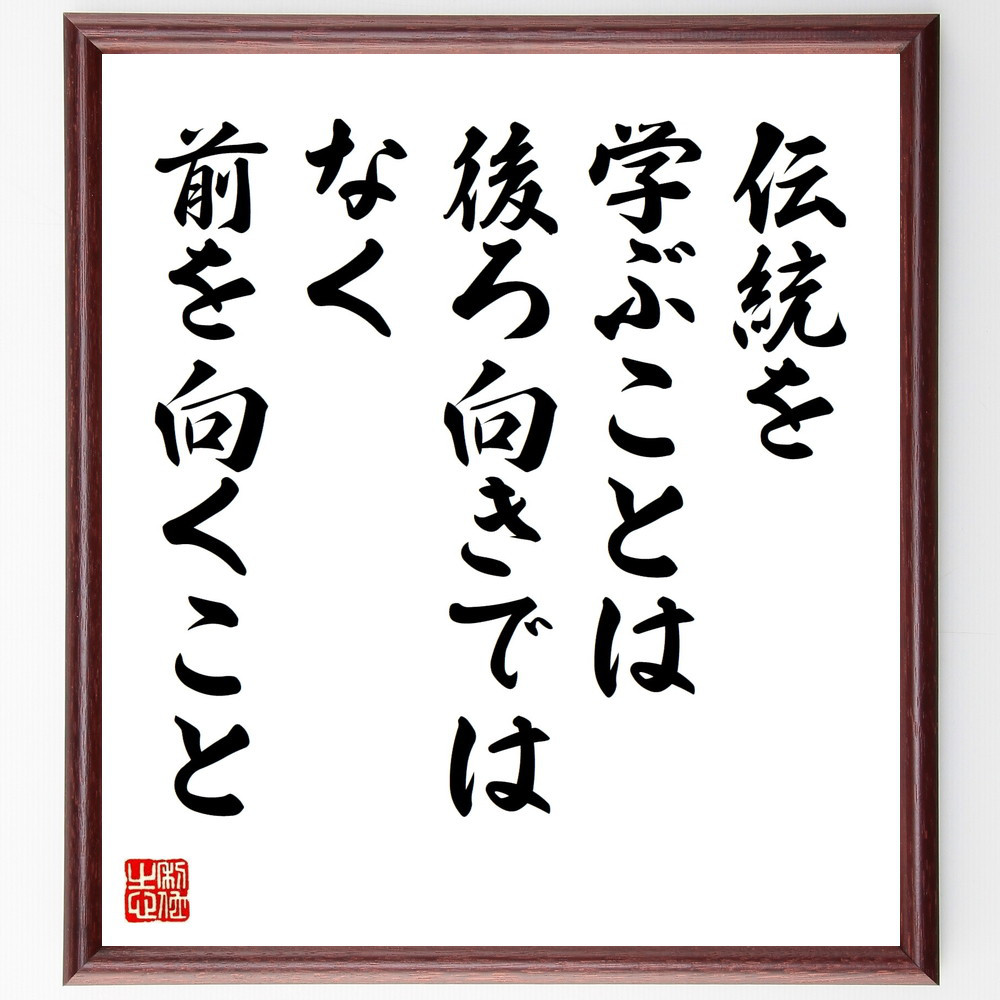 伝統を
学ぶことは
後ろ向きでは
なく
前を向くこと